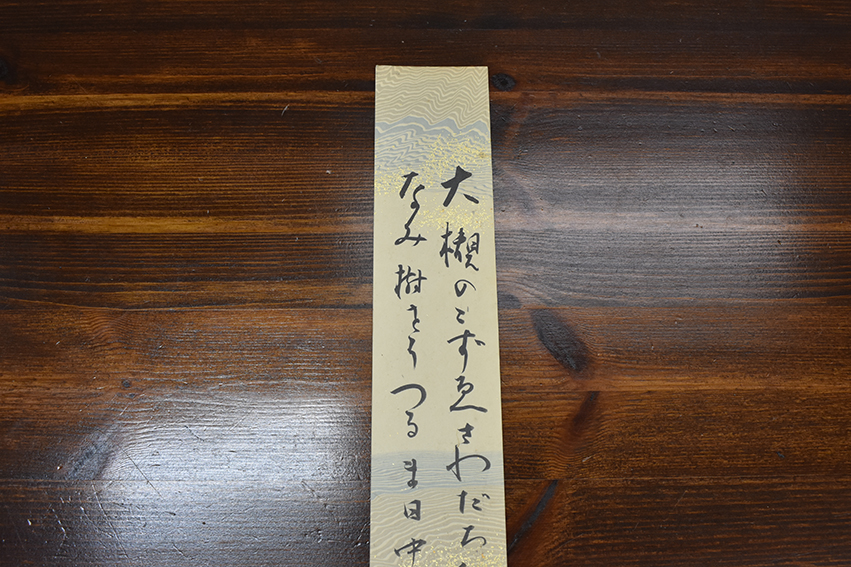 大槻のこずゑさわだち
なみ樹をうつるま日中